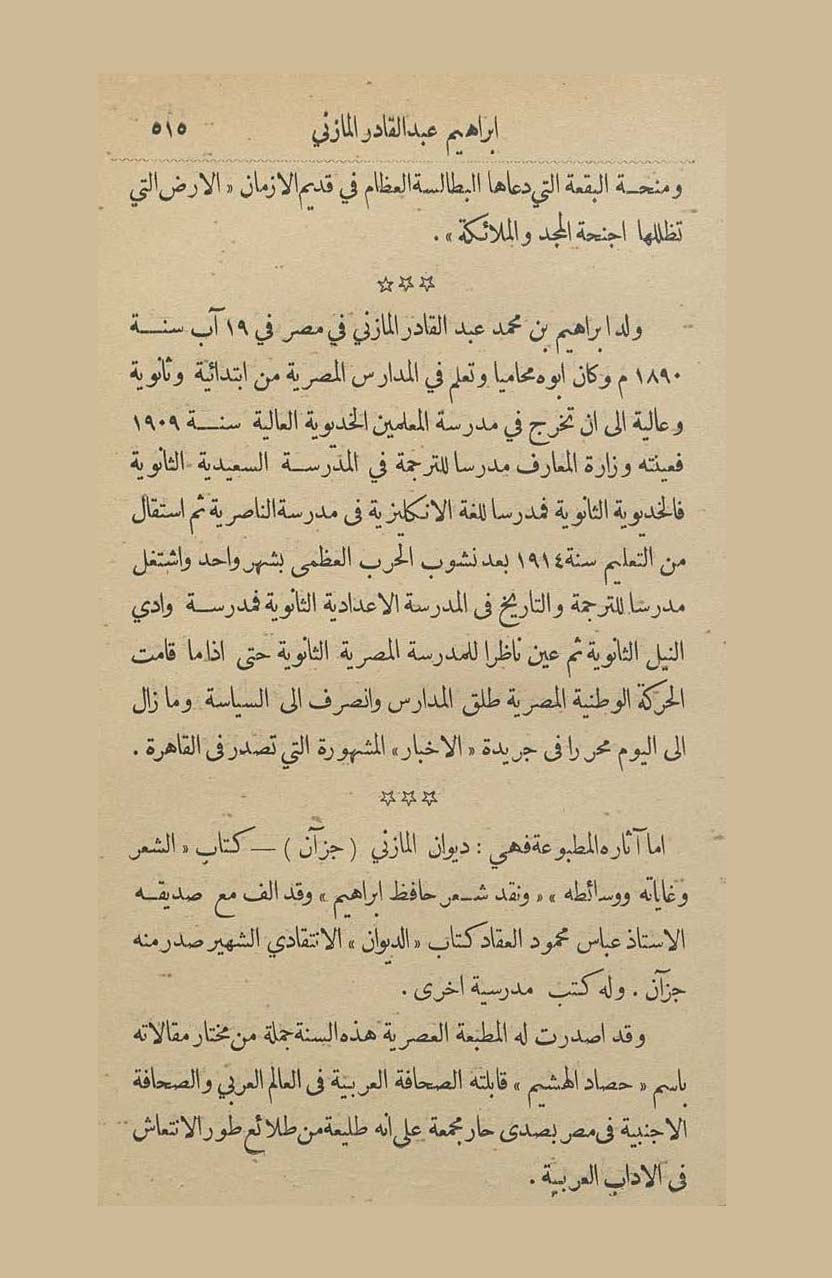 ابراهيم عبدالقادر المازني ٥١٥
ومنحة البقعة التي دعاها البطالسة العظام في قديم الازمان « الارض التي
تظللها اجنحة المجد والملائكة » .
☆☆☆
ولد ابراهيم بن محمد عبد القادر المازني في مصر في ١٩ آب سنة
١٨٩٠ م وكان ابوه محاميا وتعلم في المدارس المصرية من ابتدائية وثانوية
وعالية الى ان تخرج في مدرسة المعلمين الخديوية العالية سنة ١٩٠٩
فعينته وزارة المعارف مدرسا للترجمة في المدرسة السعيدية الثانوية
فالخديوية الثانوية فمدرسا للغة الانكليزية فى مدرسة الناصرية ثم استقال
من التعليم سنة ١٩١٤ بعد نشوب الحرب العظمى بشهر واحد واشتغل
مدرسا للترجمة والتاريخ فى المدرسة الاعدادية الثانوية فمدرسة وادي
النيل الثانوية ثم عين ناظرا للمدرسة المصرية الثانوية حتى اذا ما قامت
الحركة الوطنية المصرية طلق المدارس وانصرف الى السياسة وما زال
الى اليوم محررا فى جريدة « الاخبار » المشهورة التي تصدر فى القاهرة .
☆☆☆
اما آثاره المطبوعة فهي : ديوان المازني ( جزآن ) — كتاب « الشعر
وغاياته ووسائطه » « ونقد شعر حافظ ابراهيم » وقد الف مع صديقه
الاستاذ عباس محمود العقاد كتاب « الديوان » الانتقادي الشهير صدر منه
جزآن . وله كتب مدرسية اخرى .
وقد اصدرت له المطبعة العصرية هذه السنة جملة من مختار مقالاته
باسم « حصاد الهشيم » قابلته الصحافة العربية فى العالم العربي والصحافة
الاجنبية فى مصر بصدى حار مجمعة على انه طليعة من طلائع طور الانتعاش
فى الاداب العربية .